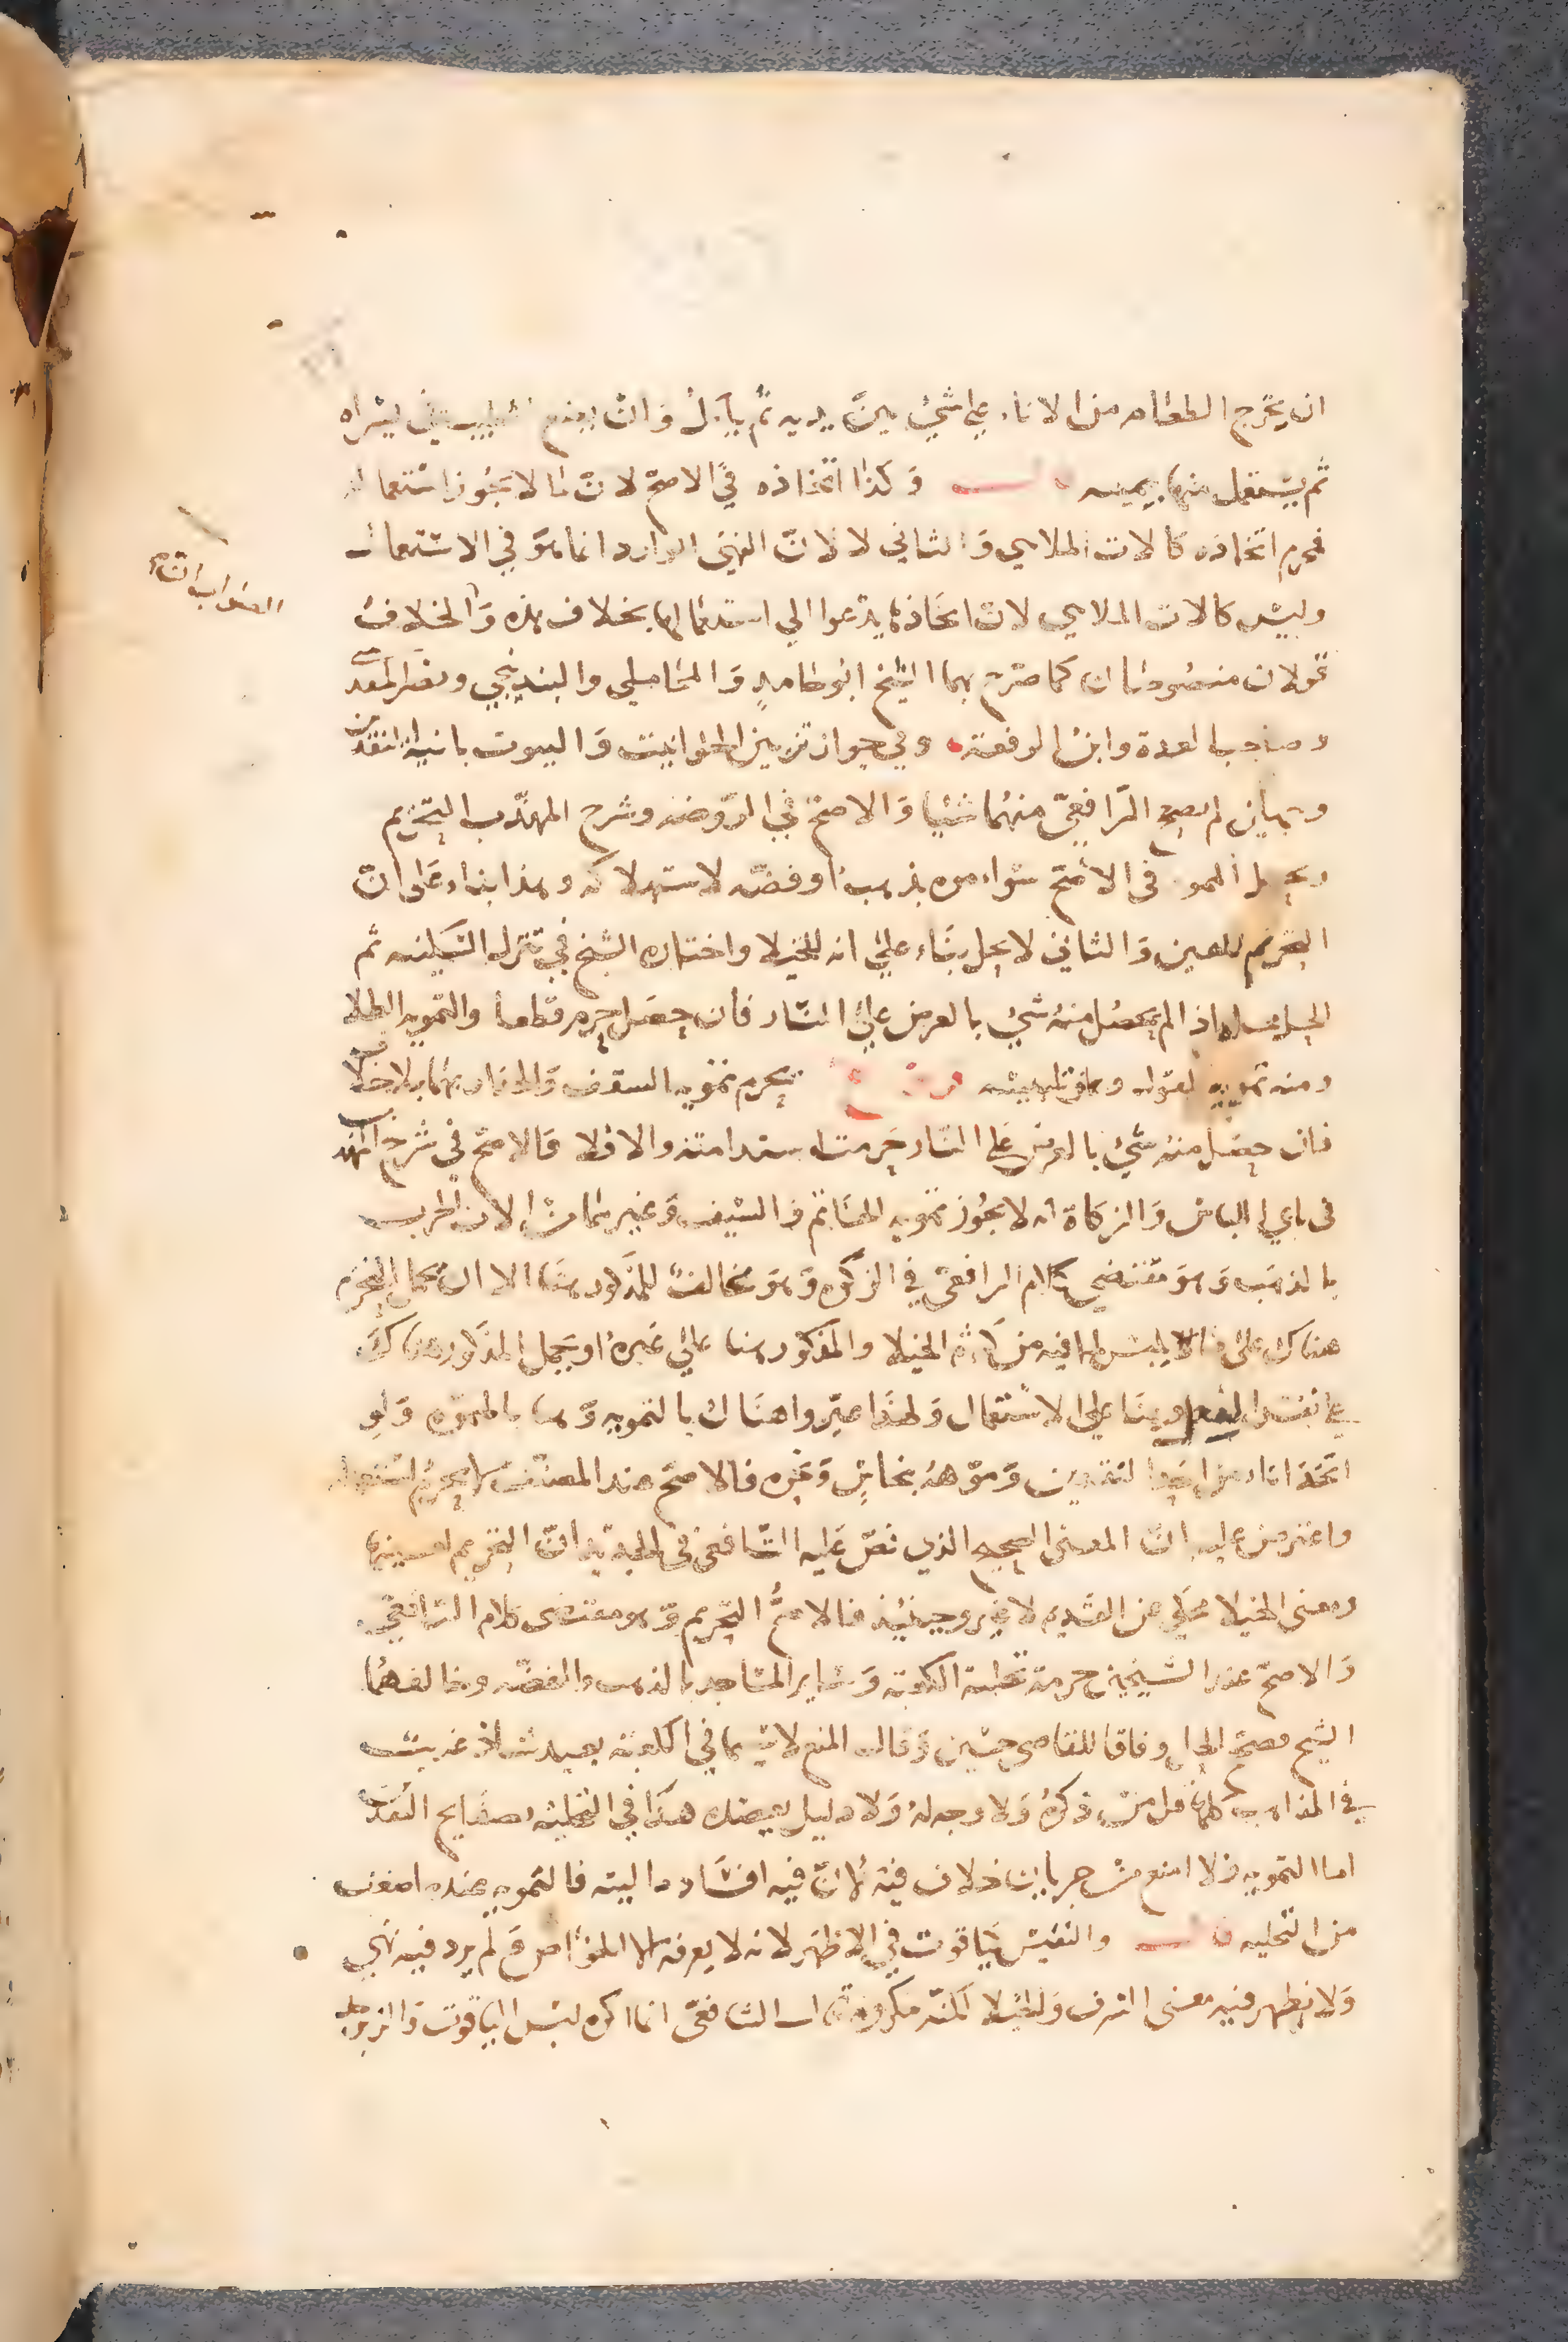 ان يخرج الطعام من الاناء على شيء بين يديه ثم ياكل وان يضع الطيب في يسراه
ثم يستعمل منها بيمينه وكذا اتخاذه في الاصح لان ما لا يجوز استعماله
فحرم اتخاذه كالات الملاهي والثاني لا لان النهي الوارد انما هو في الاستعمال
وليس كالات الملاهي لان اتخاذها يدعوا الي استعمالها بخلاف هذه والخلاف
قولان منصوصان كما صرح بهما الشيخ ابو حامد والمحاملي والبندنيجي ونصر المقدسي
وصاحب العدة وابن الرفعة وفي جواز تزيين الحوانيت والبيوت بانية النقدين
وجهان لم يصحح الرافعي منهما شيئا والاصح في الروضة وشرح المهذب التحريم
ويحل المموه في الاصح سواء موه بذهب او فضة لاستهلاكه وهذا بناء على ان
التحريم للعين والثاني لا يحل بناء علي انه للخيلا واختاره الشيخ في تنزل السكينه ثم
الحل اذا لم يحصل منه شيء بالعرض علي النار فان حصل حرم قطعا والتمويه الطلا
ومنه تمويه القول وهو تلبيسه يحرم تمويه السقف والجدار بهما بلا خلاف
فان حصل منه شيء بالعرض على النار حرمت استدامته والا فلا والاصح في شرح المهذب
في بابي اللباس والزكاة انه لا يجوز تمويه الخاتم والسيف وغيرهما من الات الحرب
بالذهب وهو مقتضي كلام الرافعي في الزكوة وهو مخالف للمذكور هنا الا ان يحمل التحريم
هناك على ما يلبس لما فيه من كثرة الخيلا والمذكور هنا علي غيره او يحمل المذكور هناك
علي نفس الفعل وهنا على الاستعمال ولهذا عبروا هناك بالتمويه وهنا بالمموه ولو
اتخذ اناء من احد النقدين وموهه بنحاس وغيره فالاصح عند المصنف لا يحرم استعماله
واعترض عليه ان المعنى الصحيح الذي نص عليه الشافعي في الجديد ان التحريم لعينها
ومعنى الخيلا محكي عن القديم لا غير وحينئذ فالاصح التحريم وهو مقتضى كلام الرافعي
والاصح عند الشيخين حرمة تحلية الكعبة وسائر المساجد بالذهب والفضة وخالفهما
الشيخ فصحح الحل وفاقا للقاضي حسين وقال المنع لا سيما في الكعبة بعيد شاذ غريب
في المذاهب كلها قل من ذكره ولا وجه له ولا دليل يعضده هذا في التحلية بصفايح النقد
اما التمويه فلا امنع من جريان خلاف فيه لان فيه افساد مالية فالتمويه عنده اضعف
من التحليه قال والنفيس كياقوت في الاظهر لانه لا يعرفه الا الخواص ولم يرد فيه نهي
ولا يظهر فيه معنى السرف والخيلا لكنه مكروه قال الشافعي انما اكره لبس الياقوت والزبرجد